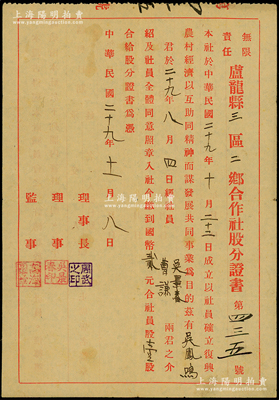 上海陽明拍賣
無限
責任
盧龍縣三區二鄉合作社股分證書 第四三五號
本社於中華民國二十九年十一月二十二日成立以社員確立復興
農村經濟以互助同精神而謀發展共同事業為目的茲有吳鳳鳴
君於二十九年八月四日經社員 曹謙 兩君之介
紹及社員全體同意照章入社 到國幣貳元合社員股壹股
合給股分證書為憑
中華民國二十九年十一月八日
理事長
理事
監事
上海陽明拍賣